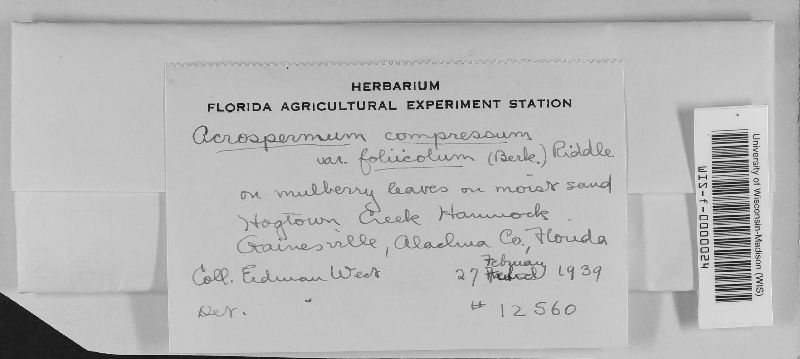 HERBARIUM
FLORIDA AGRICULTURAL EXPERIMENT STATION
Acrospermum compressum
var. foliicolum (Berk.) Riddle
on mulberry leaves on moist sand
Hogtown Creek Hammock.
Gainesville, Alachua Co., Florida
Coll. Erdman West
February
27 1939
Det. "
# 12560
University of Wisconsin-Madison (WIS)
WIS-f-0000024